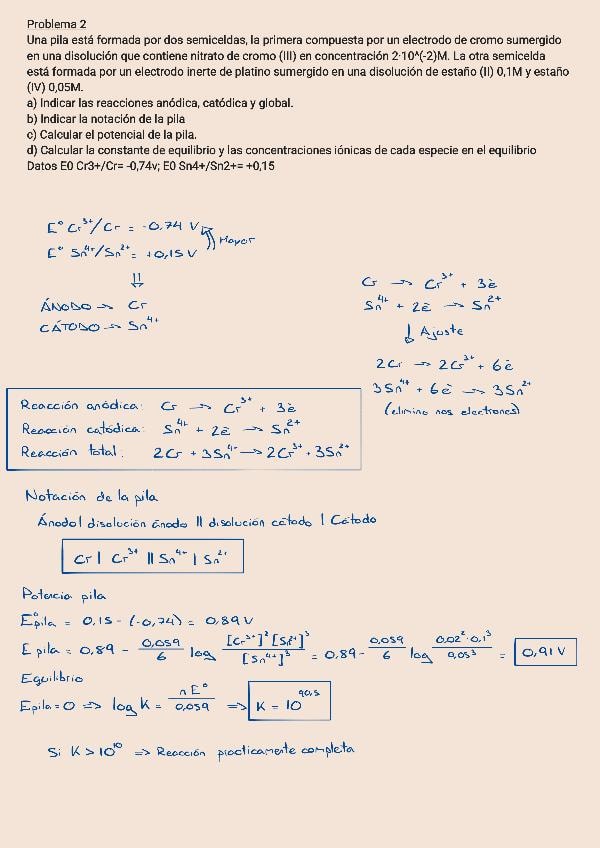 Problema 2
Una pila está formada por dos semiceldas, la primera compuesta por un electrodo de cromo sumergido
en una disolución que contiene nitrato de cromo (III) en concentración 2·10^(-2)M. La otra semicelda
está formada por un electrodo inerte de platino sumergido en una disolución de estaño (II) 0,1M y estaño
(IV) 0,05M.
a) Indicar las reacciones anódica, catódica y global.
b) Indicar la notación de la pila
c) Calcular el potencial de la pila.
d) Calcular la constante de equilibrio y las concentraciones iónicas de cada especie en el equilibrio
Datos E0 Cr3+/Cr= -0,74v; E0 Sn4+/Sn2+= +0,15
E° Cr³⁺/Cr = -0,74 V
E° Sn⁴⁺/Sn²⁺ = +0,15 V
Mayor
⇓
ÁNODO → Cr
CÁTODO → Sn⁴⁺
Cr → Cr³⁺ + 3ē
Sn⁴⁺ + 2ē → Sn²⁺
↓ Ajuste
2Cr → 2Cr³⁺ + 6ē
3Sn⁴⁺ + 6ē → 3Sn²⁺
(eliminamos electrones)
Reacción anódica: Cr → Cr³⁺ + 3ē
Reacción catódica: Sn⁴⁺ + 2ē → Sn²⁺
Reacción total: 2Cr + 3Sn⁴⁺ → 2Cr³⁺ + 3Sn²⁺
Notación de la pila
Ánodo | disolución ánodo || disolución cátodo | Cátodo
Cr | Cr³⁺ || Sn⁴⁺ | Sn²⁺
Potencia pila
E°pila = 0,15 - (-0,74) = 0,89 V
E pila = 0,89 - 0,059/6 log [Cr³⁺]² [Sn²⁺]³/[Sn⁴⁺]³ = 0,89 - 0,059/6 log 0,02² · 0,1³/0,05³ = 0,91 V
Equilibrio
Epila = 0 ⇒ log K = nE°/0,059 ⇒ K = 10^90,5
Si K > 10¹⁰ ⇒ Reacción practicamente completa